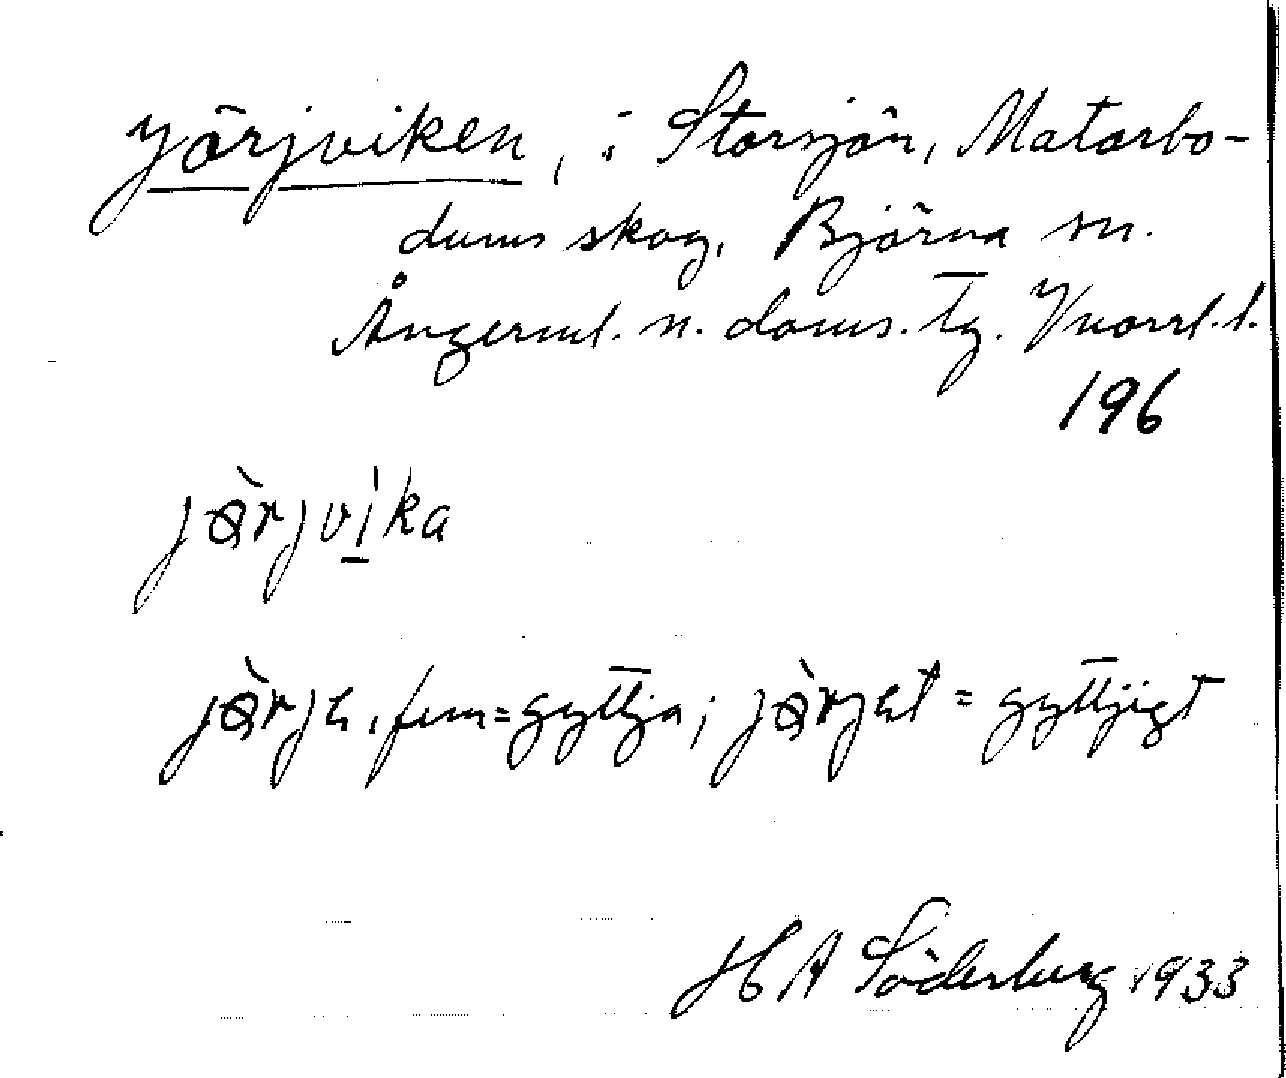 Yörjviken, i Storsjön, Matarbo-
dums skog, Björna sn.
Ångerml. n. doms. tg. Vnorrl. l.
196
jørjvika
jørje, fem = gyttja; jørjet = gyttjigt
H A Söderberg 1933